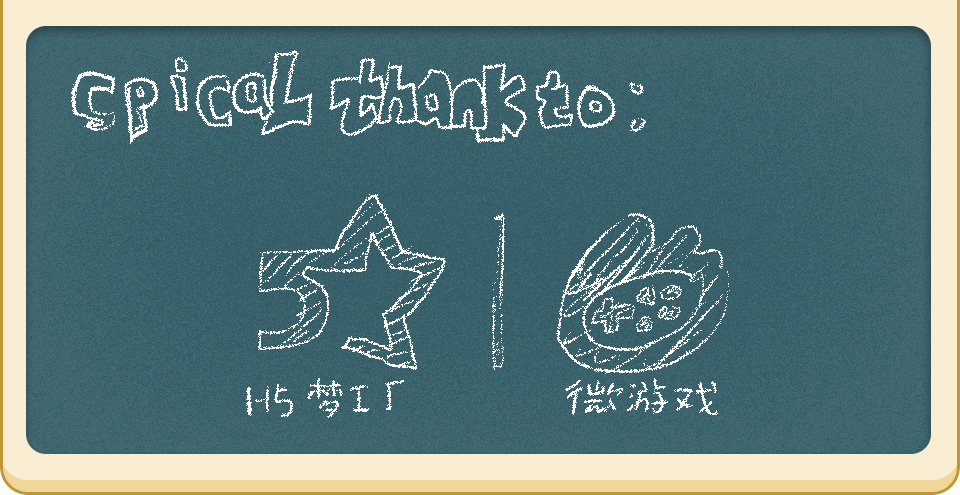 spical thank to:
H5 梦工厂
微游戏